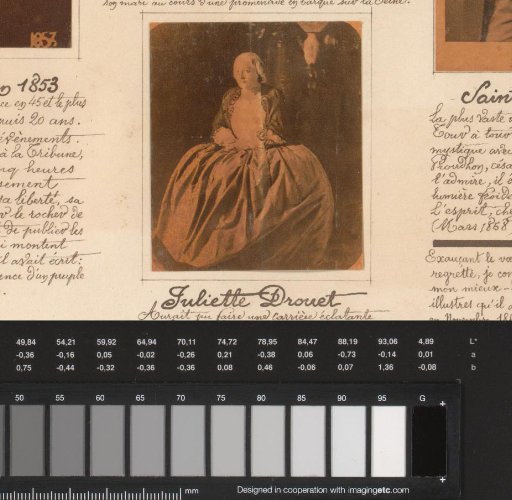 son mari au cours d'une promenade en barque sur la Seine.
1853
1853
ce en 45 et le plus
puis 20 ans.
évènements.
à la Tribune,
heures
sement
sa liberté, sa
le rocher de
de publier les
montent
il avait écrit:
ence d'un peuple
Juliette Drouet
Aurait pu faire une carrière éclatante
Sain
La plus vaste
Tour à tour
mystique avec
Proudhon,
l'admire, il
lumière
L'esprit,
(Mars 1868
Exauçant le vœ
regretté, je
mon mieux
illustres qu'il
49,84 54,21 59,92 64,94 70,11 74,72 78,95 84,47 88,19 93,06 4,89 L*
-0,36 -0,16 0,05 -0,02 -0,26 0,21 -0,38 0,06 -0,73 -0,14 0,01 a
0,75 -0,44 -0,32 -0,36 -0,36 0,08 0,46 -0,06 0,07 1,36 -0,08 b
50 55 60 65 70 75 80 85 90 95 G
mm
Designed in cooperation with imagingetc.com